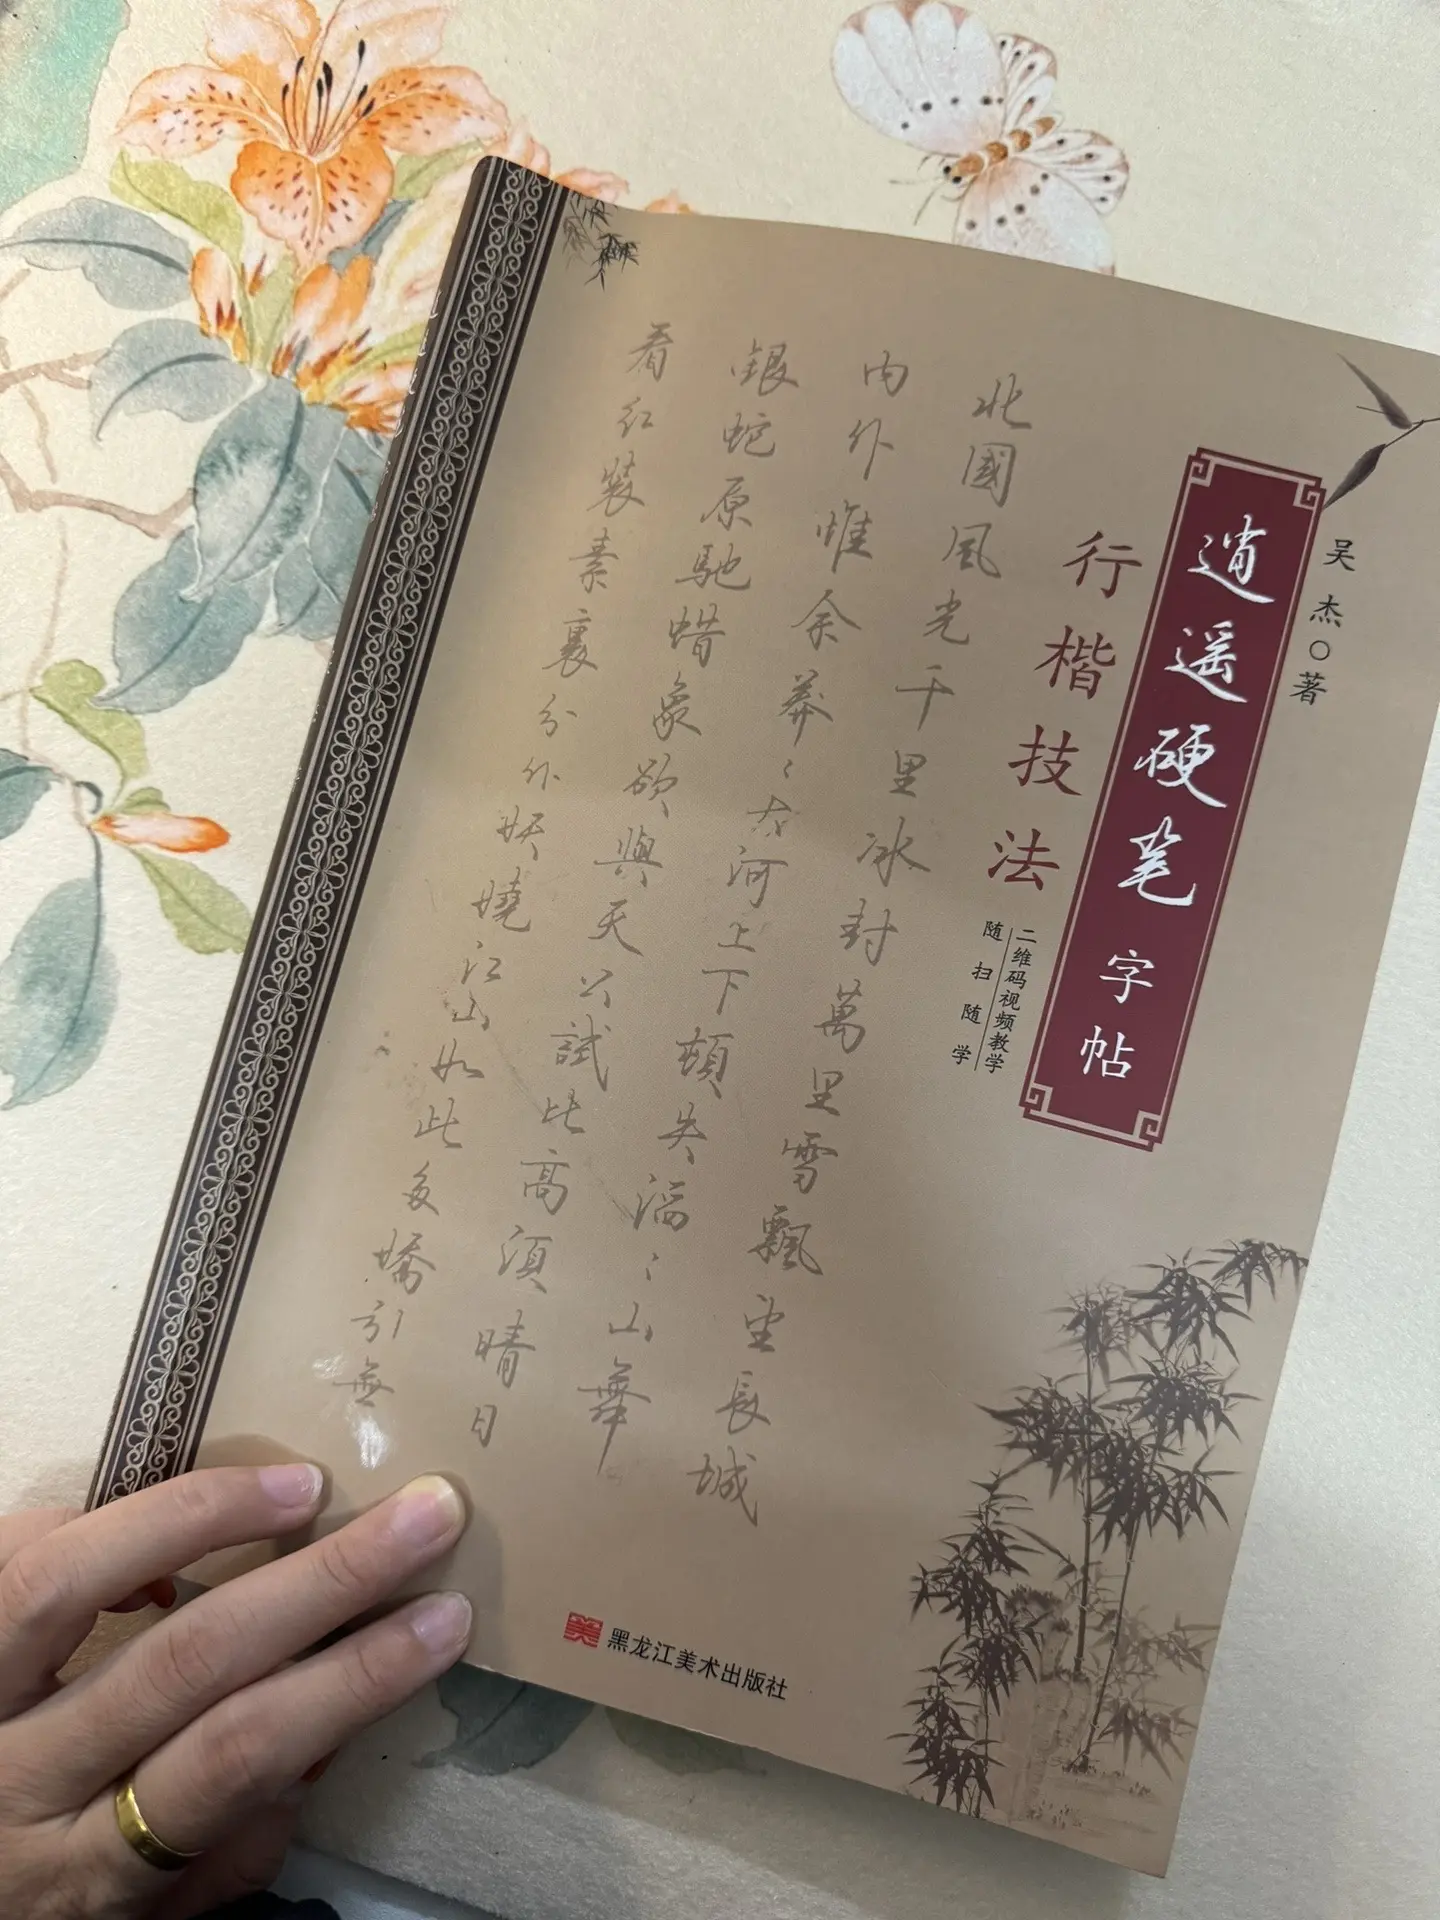 吴杰○著
逍遥硬笔字帖
行楷技法
二维码视频教学
随扫随学
北國風光千里冰封萬里雪飄望長城
内外惟余莽〻大河上下頓失滔〻山舞
銀蛇原馳蜡象欲與天公試比高須晴日
看红裝素裹分外妖嬈江山如此多嬌引無
美
黑龙江美术出版社